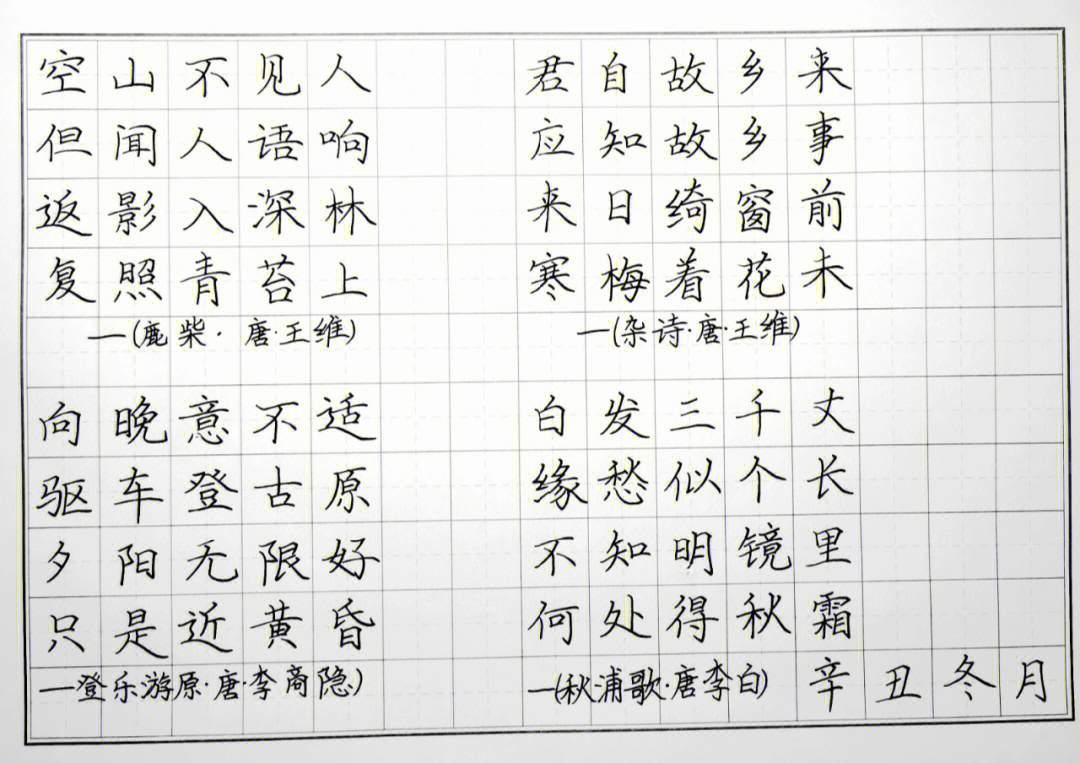 空山不见人
但闻人语响
返影入深林
复照青苔上
—(鹿柴·唐·王维)
君自故乡来
应知故乡事
来日绮窗前
寒梅着花未
—(杂诗·唐·王维)
向晚意不适
驱车登古原
夕阳无限好
只是近黄昏
—登乐游原·唐·李商隐)
白发三千丈
缘愁似个长
不知明镜里
何处得秋霜
—(秋浦歌·唐李白)
辛丑冬月